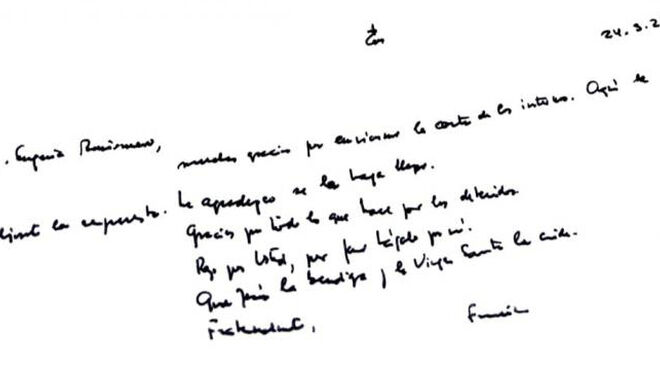 24.3.2
. Eugenia
muchas gracias por enviarme la carta de los internos. Aquí le
djunto la respuesta. Le agradezco se la haga llegar.
Gracias por todo lo que hace por los detenidos
Rezo por Usted, por favor hágalo por mí.
Que Jesús la bendiga y la Virgen Santa la cuide.
Fraternalmente,
Francisco